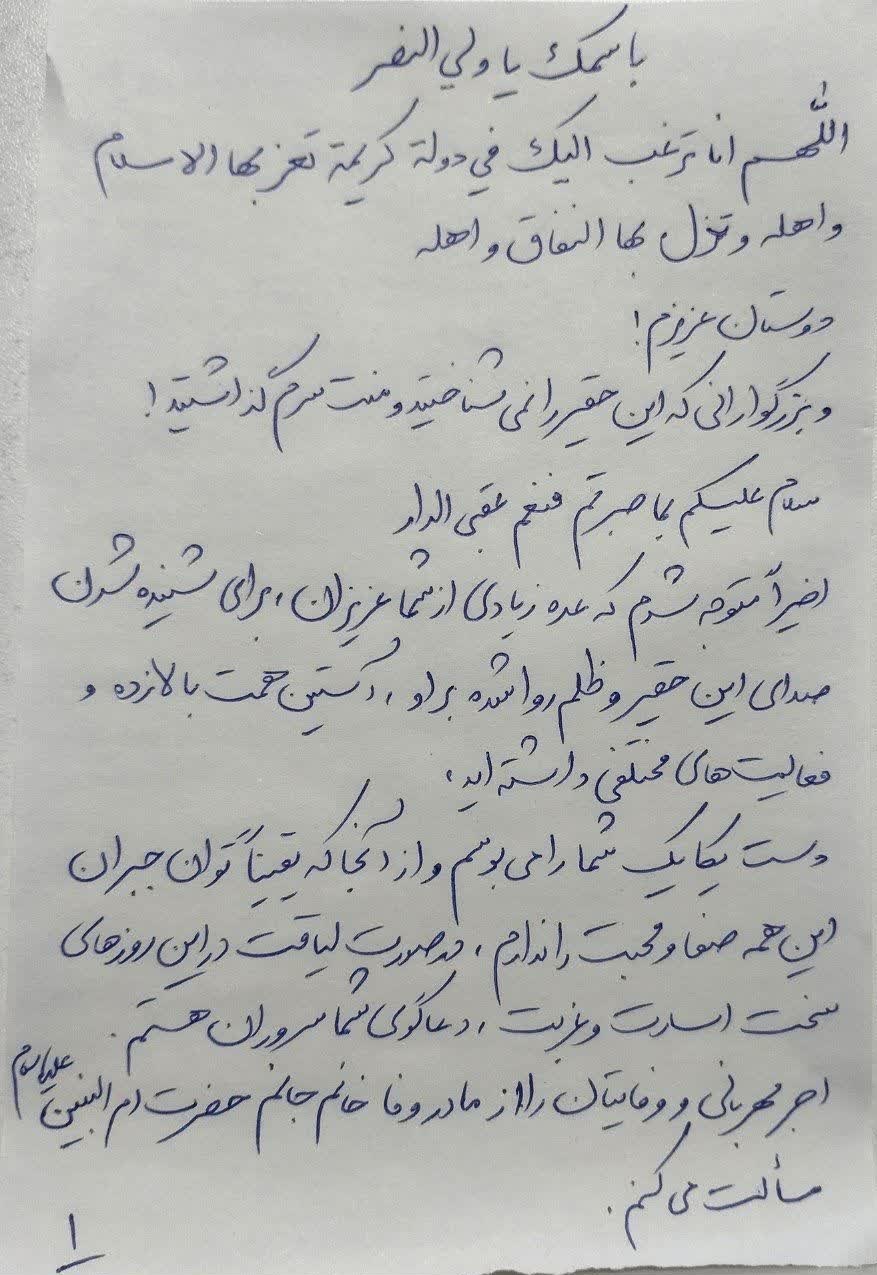 باسمك يا ولي النصر
اللّهم انا نرغب اليك في دولة كريمة تعز بها الاسلام
و اهله و تذل بها النفاق و اهله
دوستان عزیزم!
و بزرگوارانی که این حقیر را نمی شناختید و منت سرم گذاشتید!
سلام علیکم بما صبرتم فنعم عقبی الدار
اخیراً متوجه شدم که عده زیادی از شما عزیزان، برای شنیده شدن
صدای این حقیر و ظلم روا شده بر او، آستین همت بالا زده و
فعالیت های مختلفی داشته اید،
دست یکایک شما را می بوسم و از آنجا که یقیناً توان جبران
این همه صفا و محبت را ندارم، در صورت لیاقت در این روزهای
سخت اسارت و غربت، دعاگوی شما سروران هستم.
اجر مهربانی و وفایتان را از مادر وفا خانم جانم حضرت ام البنین علیها سلام
مسألت می کنم.
۱